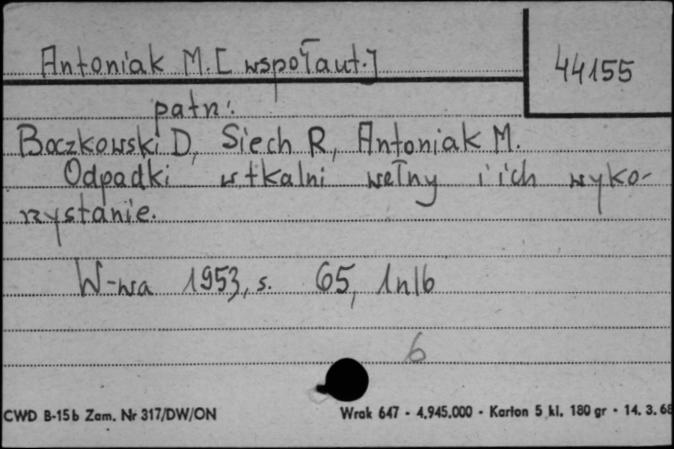 Antoniak M. [współaut.]
44155
patrz:
Boczkowski D, Siech R, Antoniak M.
Odpadki w tkalni wełny i ich wyko-
rzystanie.
W-wa 1953, s. 65, 1nlb
6
CWD B-15b Zam. Nr 317/DW/ON
Wrak 647 - 4.945.000 - Karton 5 kl. 180 gr - 14. 3. 68